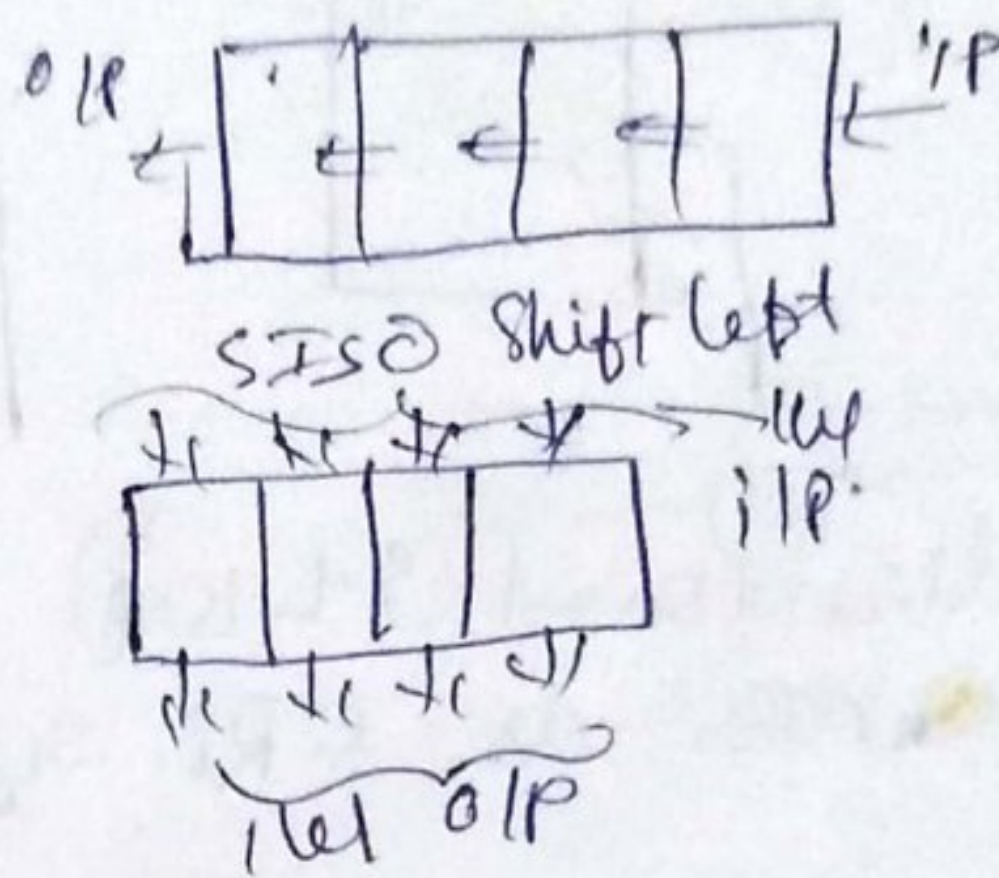 O/P I/P
SISO Shift left
llel
i/p.
llel O/P